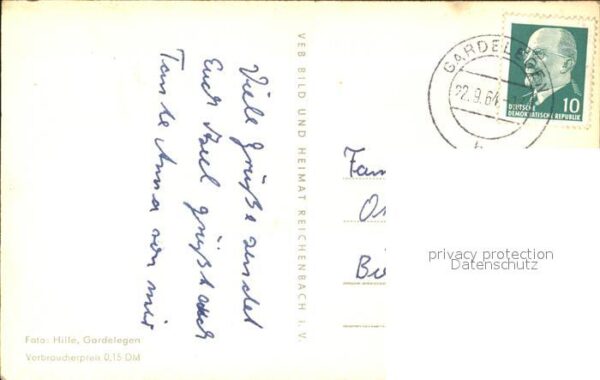 Viele Grüße sendet
Euch Axel grüßt auch
Tante Anna von mir
VEB BILD UND HEIMAT REICHENBACH i. V.
Foto: Hille, Gardelegen
Verbraucherpreis 0,15 DM
GARDELEGEN
22.9.64
b
10
DEUTSCHE
DEMOKRATISCHE REPUBLIK
Fam
privacy protection
Datenschutz